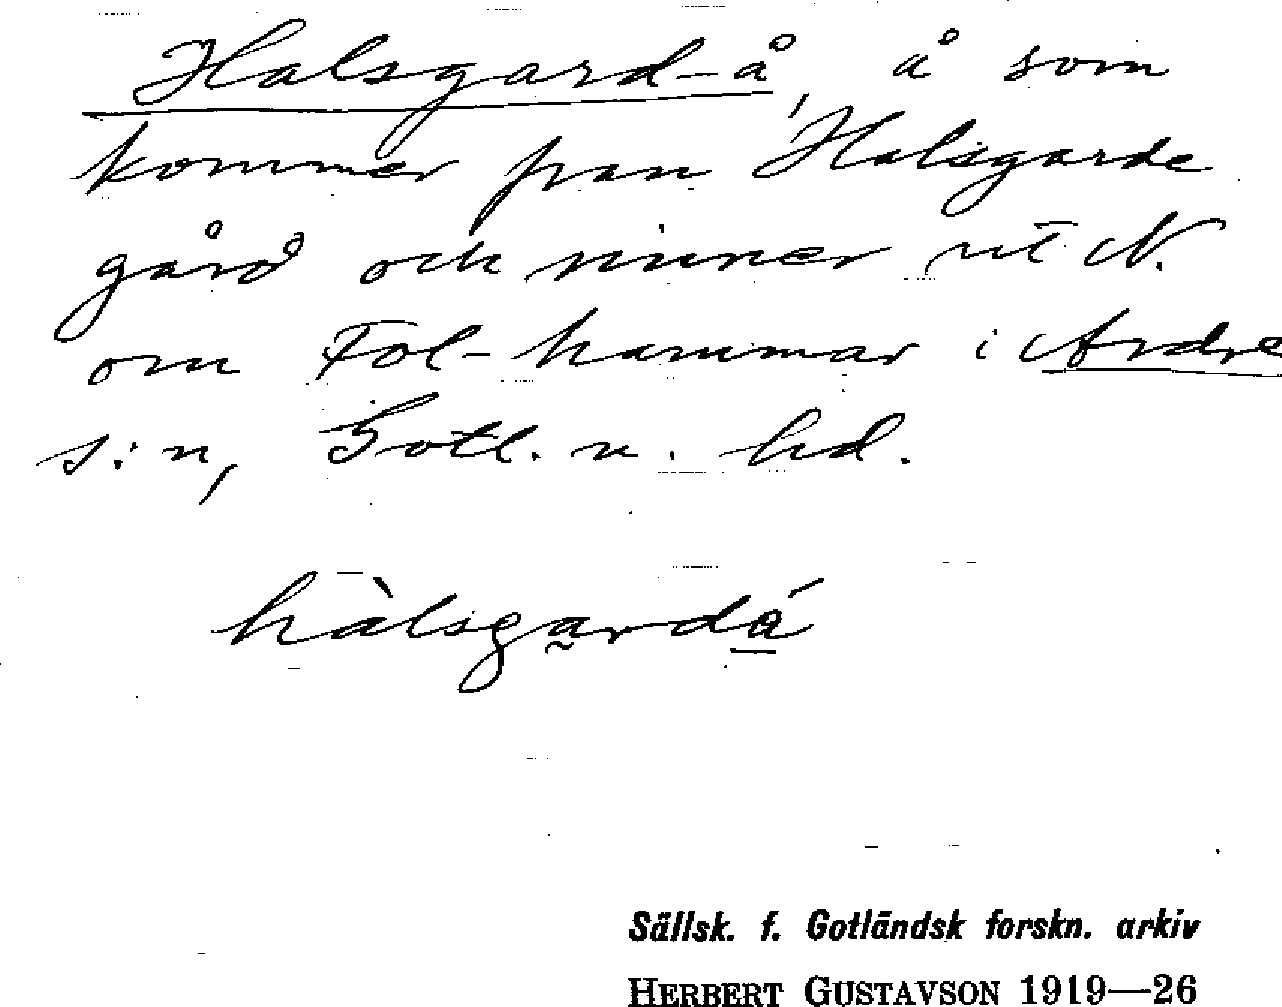 Halsgard-å, å som
kommer fran Halsgarde
gård och rinner ut N.
om Fol-hammar i Ardre
s:n, Gotl. n. hd.
hàlsgardá
Sällsk. f. Gotländsk forskn. arkiv
HERBERT GUSTAVSON 1919—26